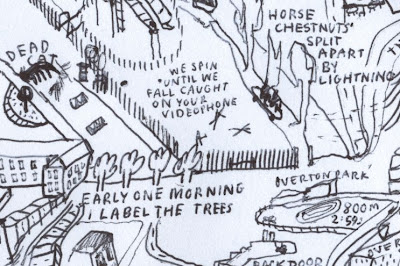 DEAD
WE SPIN
UNTIL WE
FALL CAUGHT
ON YOUR
VIDEOPHONE
HORSE
CHESTNUTS
SPLIT
APART
BY
LIGHTNING
EARLY ONE MORNING
I LABEL THE TREES
OVERTON PARK
800M
BACK DOOR
OVER